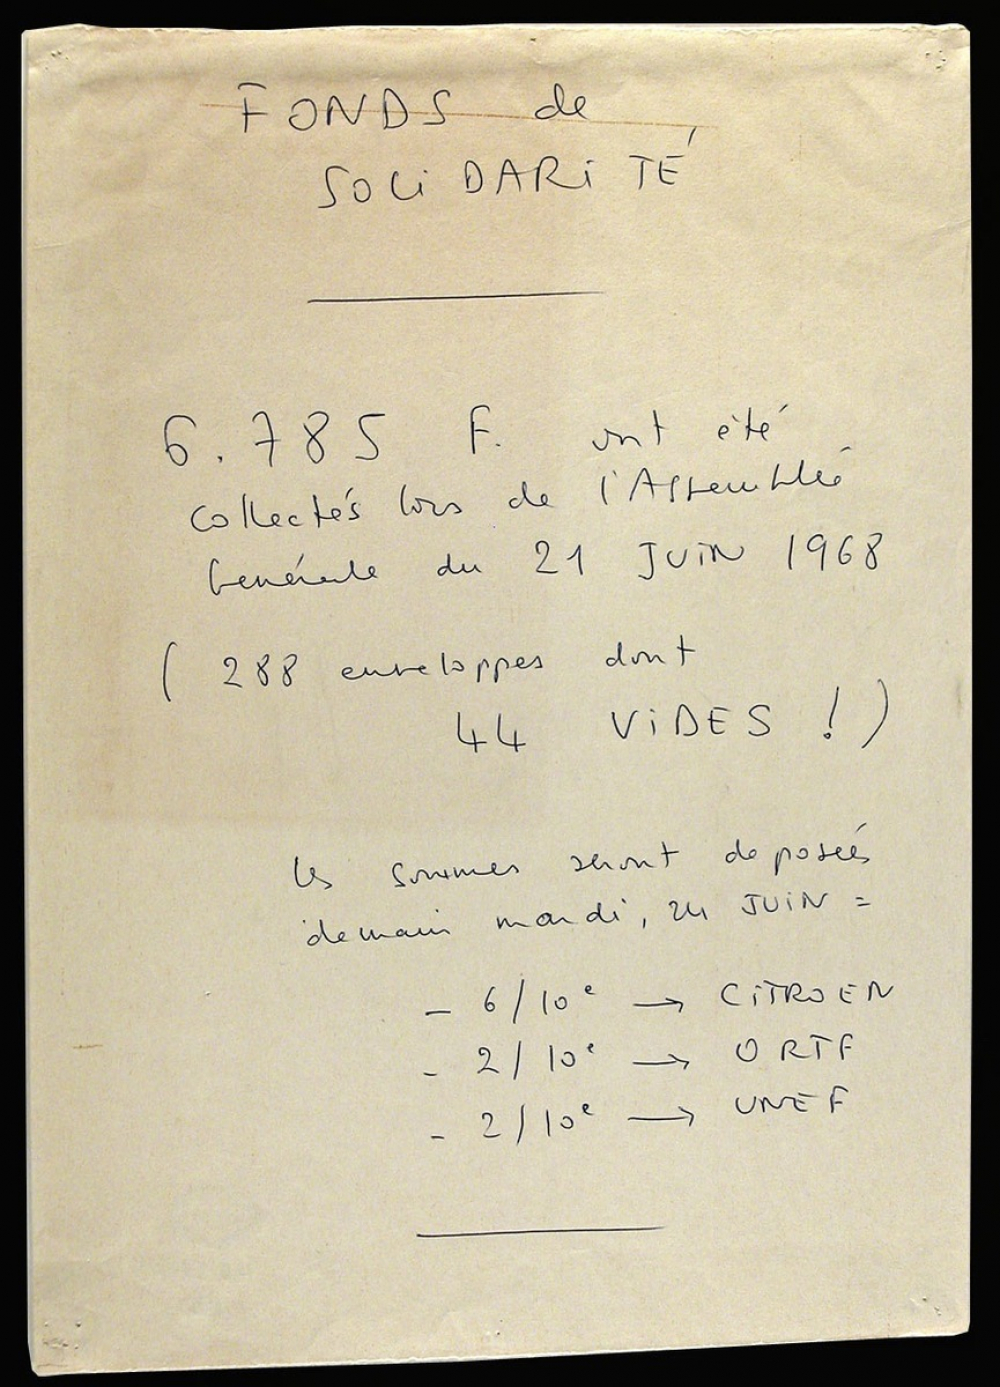 FONDS de
SOLiDARiTÉ
6.785 F. ont été
collectés lors de l'Assemblée
Générale du 21 JUiN 1968
( 288 enveloppes dont
44 ViDES ! )
les sommes seront deposées
demain mardi, 24 JUiN =
- 6/10e → CiTROEN
- 2/10e → ORTF
- 2/10e → UNEF